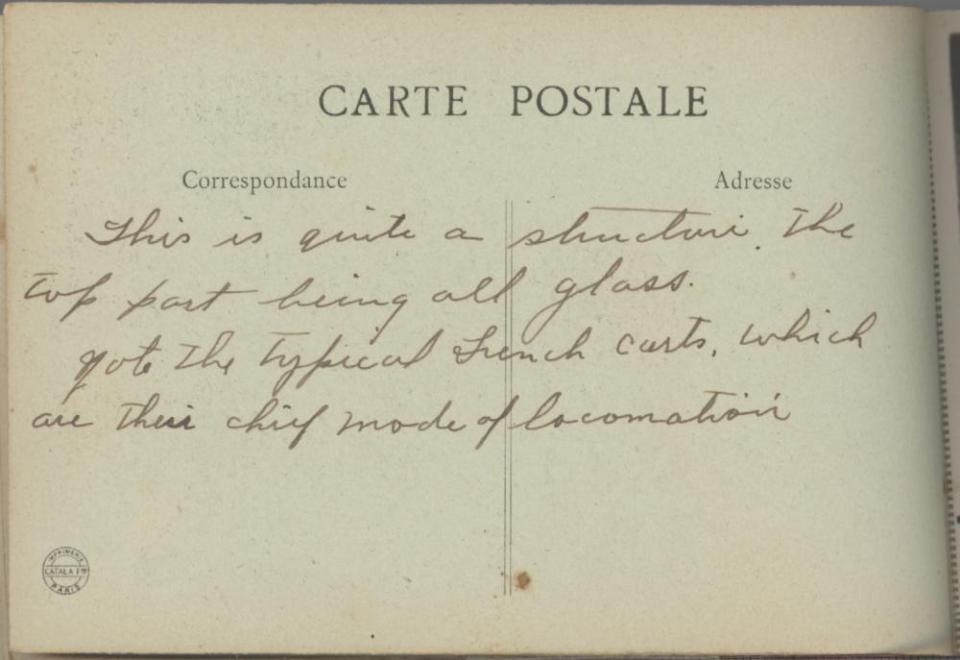 CARTE POSTALE
Correspondance
Adresse
This is quite a structure. The
top part being all glass.
Note the typical French carts, which
are their chief mode of locomation
IMPRIMERIE
CATALA Frs
PARIS